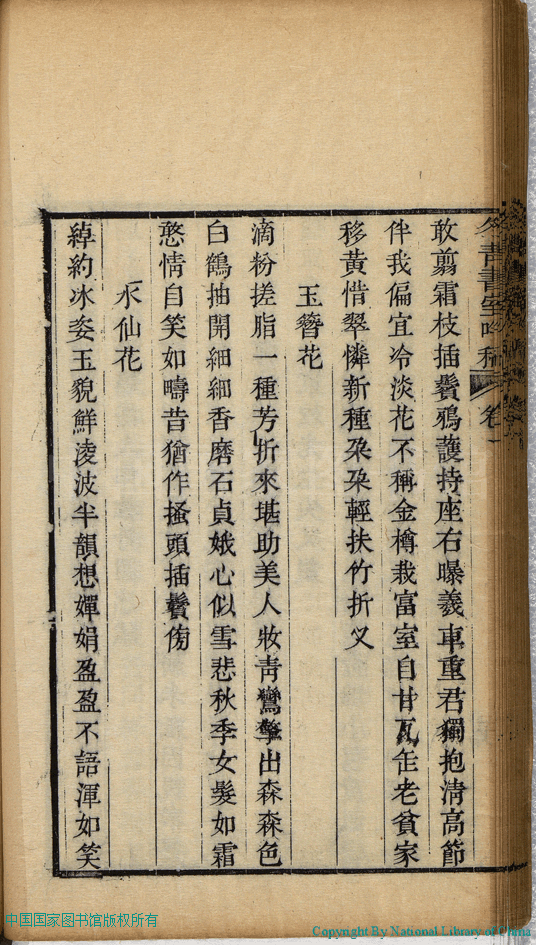 冬青書室吟稿 卷一
敢翦霜枝插鬢鴉護持座右曝羲車重君獨抱淸高節
伴我偏宜冷淡花不稱金樽栽富室自甘瓦缶老貧家
移黃惜翠憐新種朶朶輕扶竹折叉
玉簪花
滴粉搓脂一種芳折來堪助美人妝靑鸞擎出森森色
白鶴抽開細細香磨石貞娥心似雪悲秋季女髮如霜
憨情自笑如疇昔猶作搔頭插鬢傍
水仙花
綽約冰姿玉貌鮮凌波半韻想嬋娟盈盈不語渾如笑
中国国家图书馆版权所有
Copyright By National Library of China